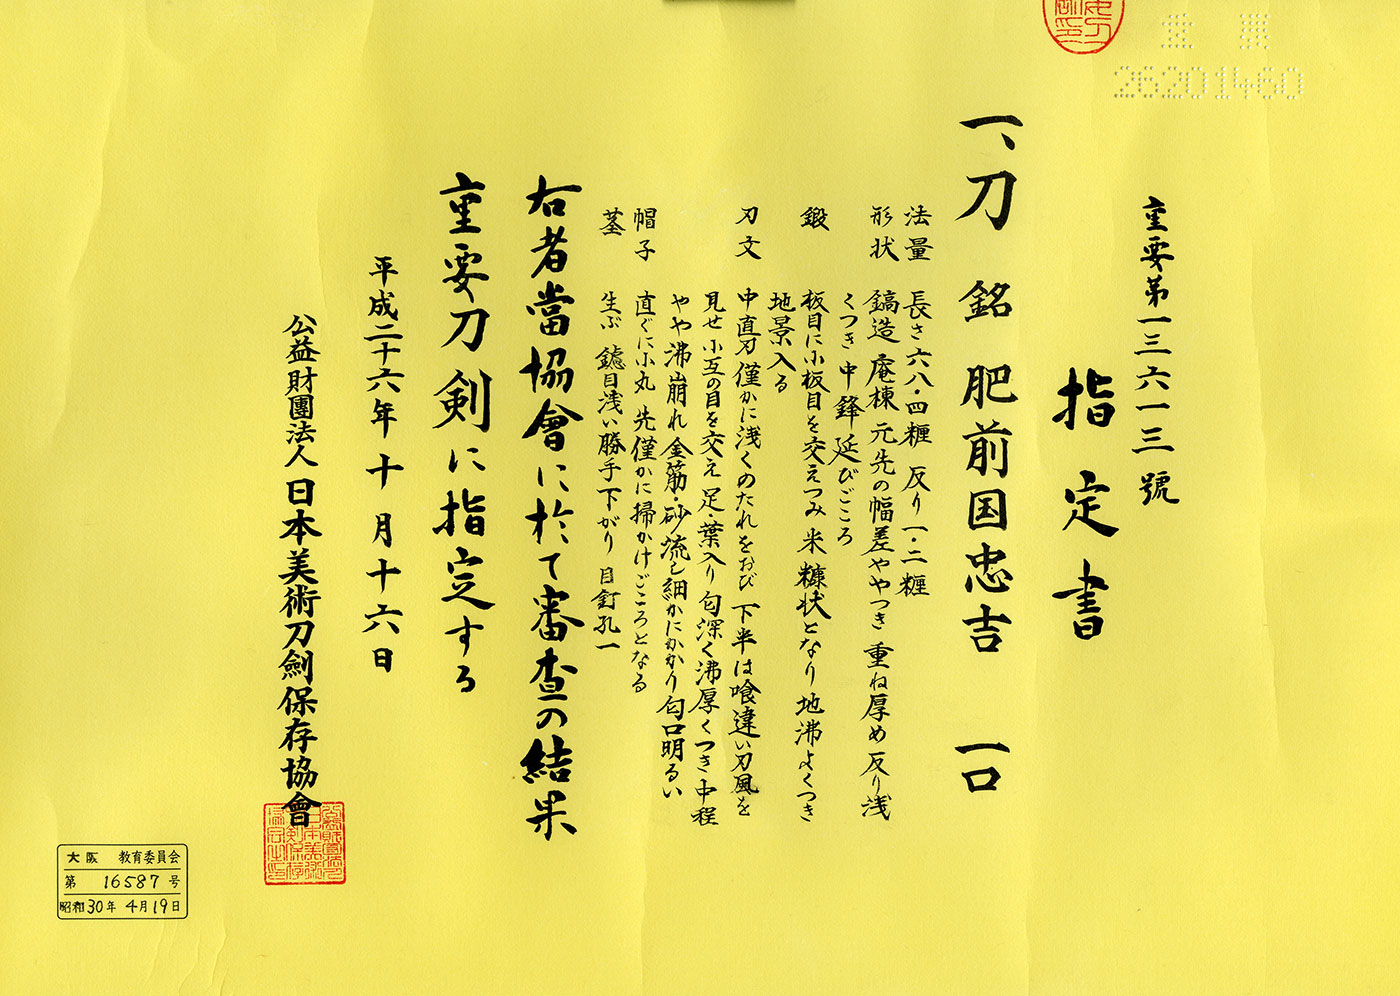 重要第一三六一三號
指定書
一、刀 銘 肥前国忠吉 一口
法量 長さ六八・四糎 反り一・二糎
形状 鎬造 庵棟 元先の幅差ややつき 重ね厚め 反り浅
くつき 中鋒延びごころ
鍛 板目に小板目を交えつみ 米糠状となり 地沸よくつき
地景入る
刃文 中直刃僅かに浅くのたれをおび 下半は喰違い刃風を
見せ 小互の目を交え 足・葉入り 匂深く沸厚くつき 中程
やや沸崩れ 金筋・砂流し細かにかかり 匂口明るい
帽子 直ぐに小丸 先僅かに掃かけごころとなる
茎 生ぶ 鑢目浅い勝手下がり 目釘孔一
右者當協會に於て審査の結果
重要刀剣に指定する
平成二十六年十月十六日
公益財團法人日本美術刀劍保存協會
重要
26201460
大阪 教育委員会
第 16587 号
昭和30年 4月19日